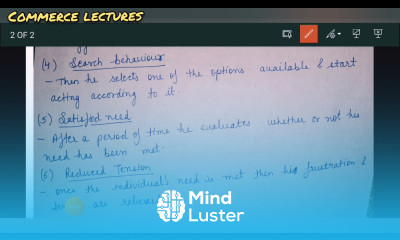 COMMERCE LECTURES
2 OF 2
(4) Search behaviour
- Then he selects one of the options available & start
acting according to it.
(5) Satisfied need
- After a period of time he evaluates whether or not his
need has been met.
(6) Reduced Tension
- once the individual's need is met then his frustration &
are
Mind
Luster